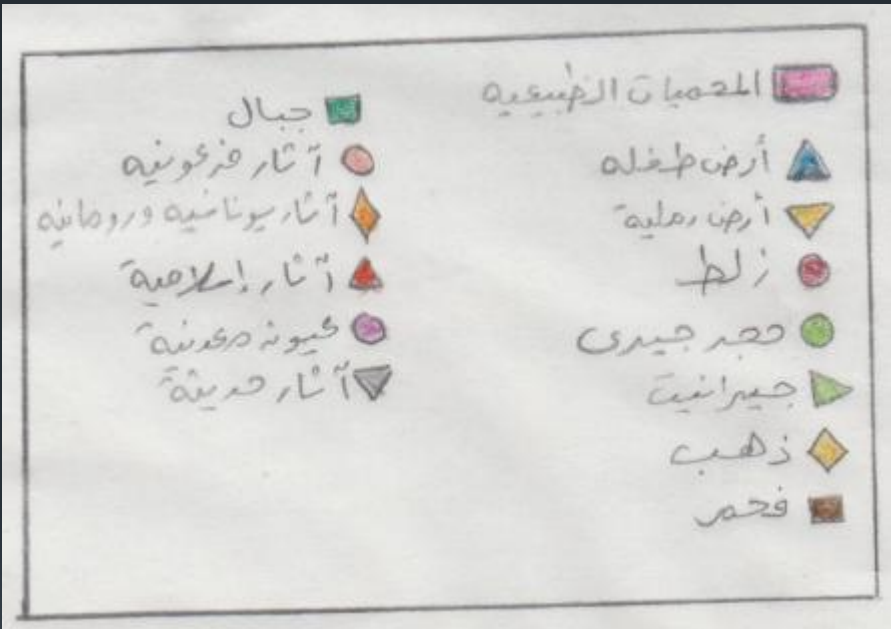 المحميات الطبيعيه
أرض طفله
أرض رملية
زلط
حجر جيرى
جيرانيت
ذهب
فحم
جبال
آثار فرعونيه
آثار يونانيه ورومانيه
آثار إسلامية
عيون معدنية
آثار حديثة